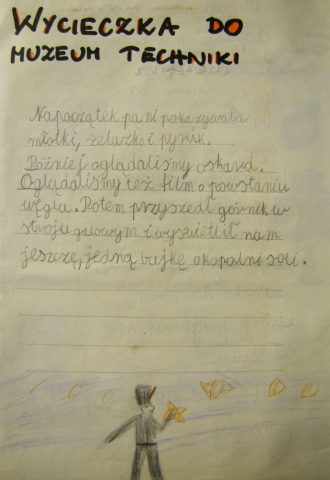 WYCIECZKA DO
MUZEUM TECHNIKI
Na początek pani pokazywała
młotki, żelazko i
Później oglądaliśmy oskara.
Oglądaliśmy też film o powstaniu
węgla. Potem przyszedł górnik w
stroju galowym i wyświetlił nam
jeszczę, jedną bajkę o kopalni soli.